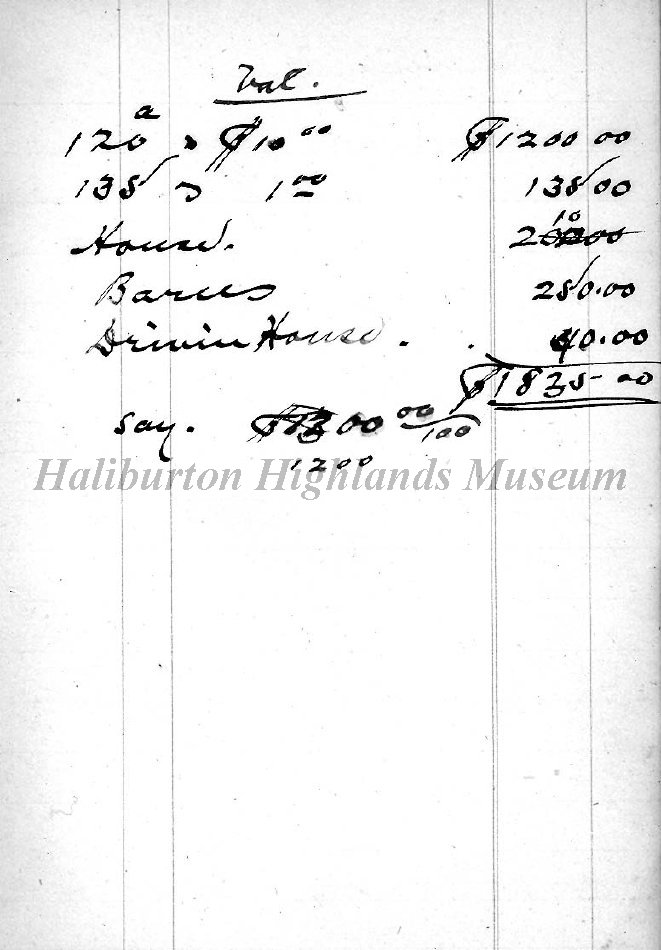 Val.
120 a @ $10 00 $1200 00
135 @ 1 00 135 00
10
House. 200 00
Barns 250.00
Drivin House . . 40.00
$1835 00
say. $1300 00/100
1200
Haliburton Highlands Museum